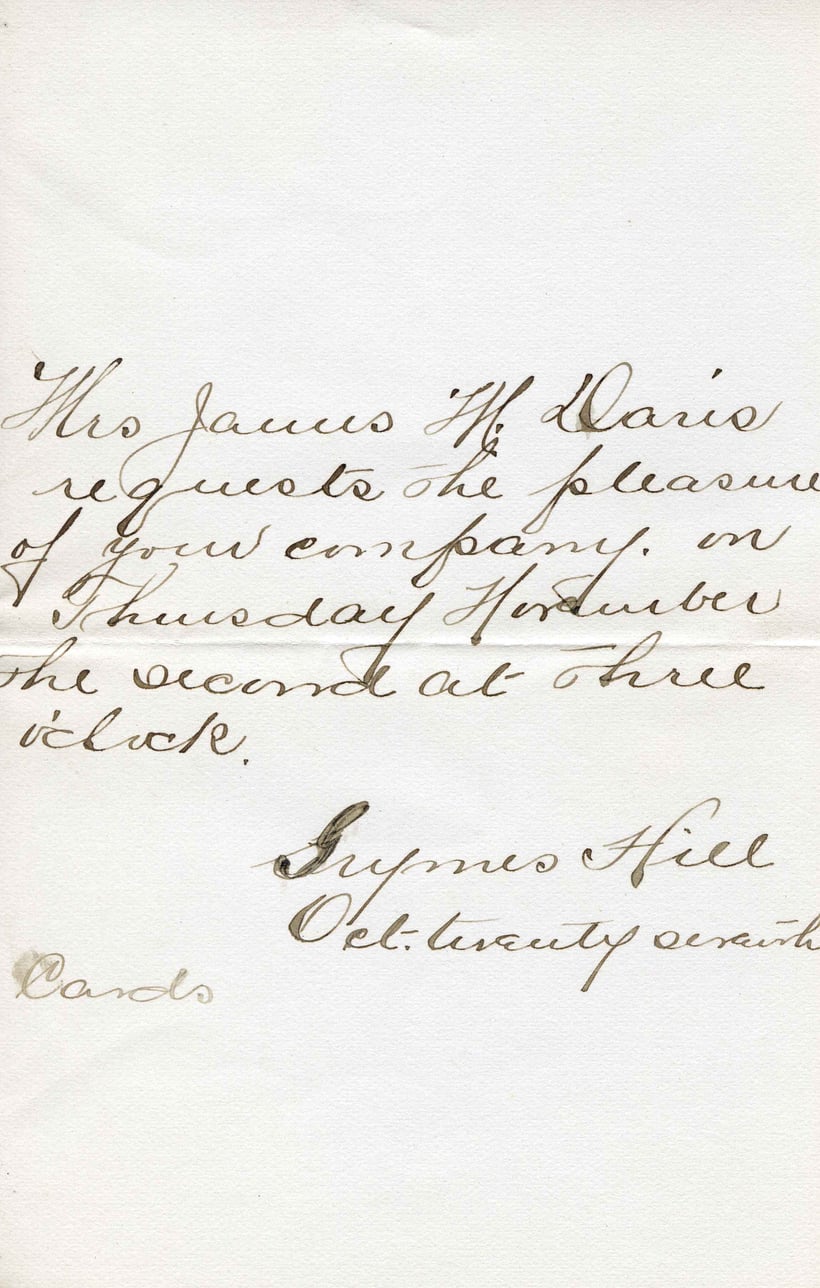 Mrs James M. Davis
requests the pleasure
of your company. on
Thursday November
the second at three
o'clock.
Grymes Hill
Oct. twenty seventh
Cards